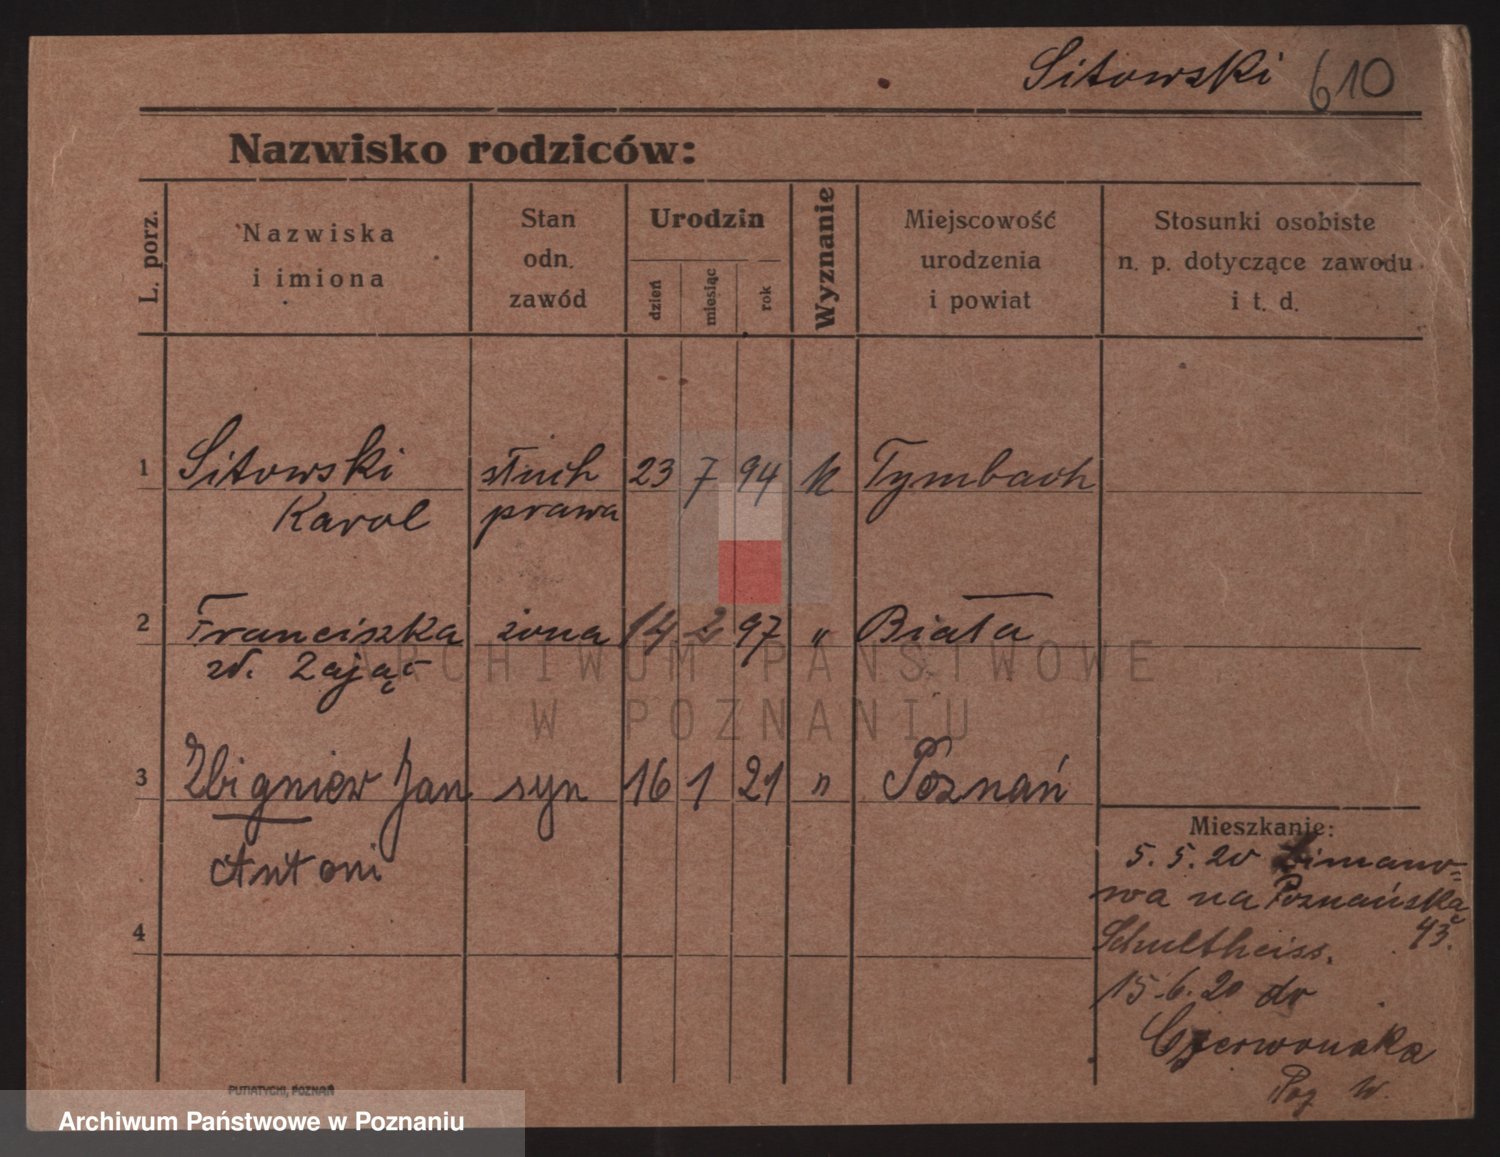 Sitowski 610
Nazwisko rodziców:
L. porz.
Nazwiska
i imiona
Stan
odn.
zawód
Urodzin
dzień
miesiąc
rok
Wyznanie
Miejscowość
urodzenia
i powiat
Stosunki osobiste
n. p. dotyczące zawodu
i t. d.
1 Sitowski słuch 23 7 94 k Tymbach
Karol prawa
2 Franciszka żona 14 2 97 " Biała
zd. Zając
3 Zbigniew Jan syn 16 1 21 " Poznań
Antoni
4
Mieszkanie:
5. 5. 20 Limano=
wa na Poznańską
43.
Schultheiss.
15.6.20 do
Czerwonaka
Poz W.
PUTIATYCKI, POZNAŃ
ARCHIWUM PAŃSTWOWE
W POZNANIU
Archiwum Państwowe w Poznaniu